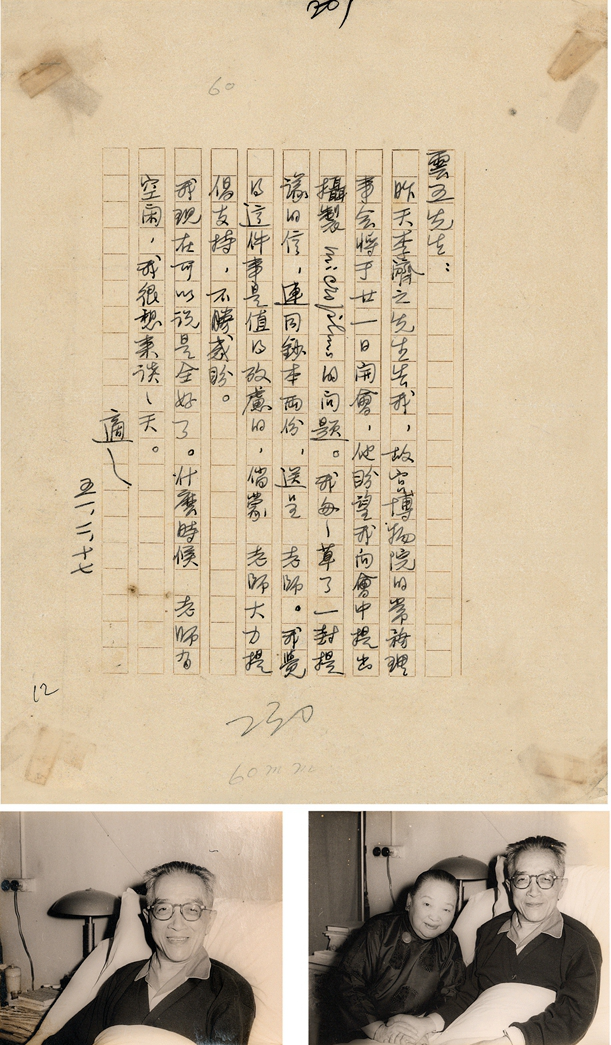 201
60
雲五先生：
昨天李濟之先生告我，故宮博物院的常務理
事会將于廿一日開會，他盼望我向會中提出
攝製 microfilms 的问题。我匆匆草了一封提
議的信，連同鈔本兩份，送呈 老師。我覺
得這件事是值得攷慮的，倘蒙 老師大力提
倡支持，不勝感盼。
我現在可以说是全好了。什麽時候 老師有
空闲，我很想来谈谈天。
適
五一、二、十七
12
230
60 m m